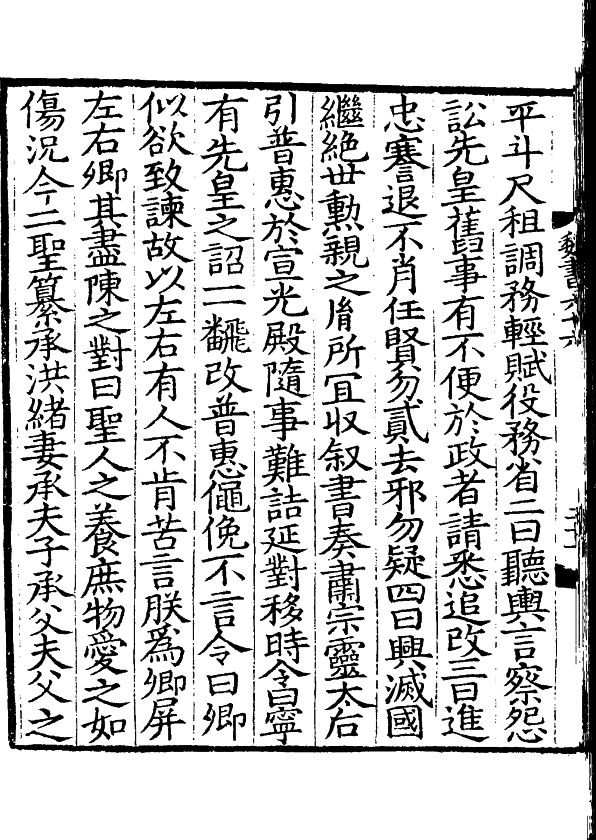 平斗尺租調務輕賦役務省二曰聽輿言察怨
訟先皇舊事有不便於政者請悉追改三曰進
忠謇退不肖任賢勿貳去邪勿疑四曰興滅國
繼絶世勲親之胤所冝収叙書奏肅宗靈太后
引普惠於宣光殿隨事難詰延對移時令曰寧
有先皇之詔一一飜改普惠僶俛不言令曰卿
似欲致諫故以左右有人不肯苦言朕爲卿屏
左右卿其盡陳之對曰聖人之養庶物愛之如
傷況今二聖纂承洪緒妻承夫子承父夫父之